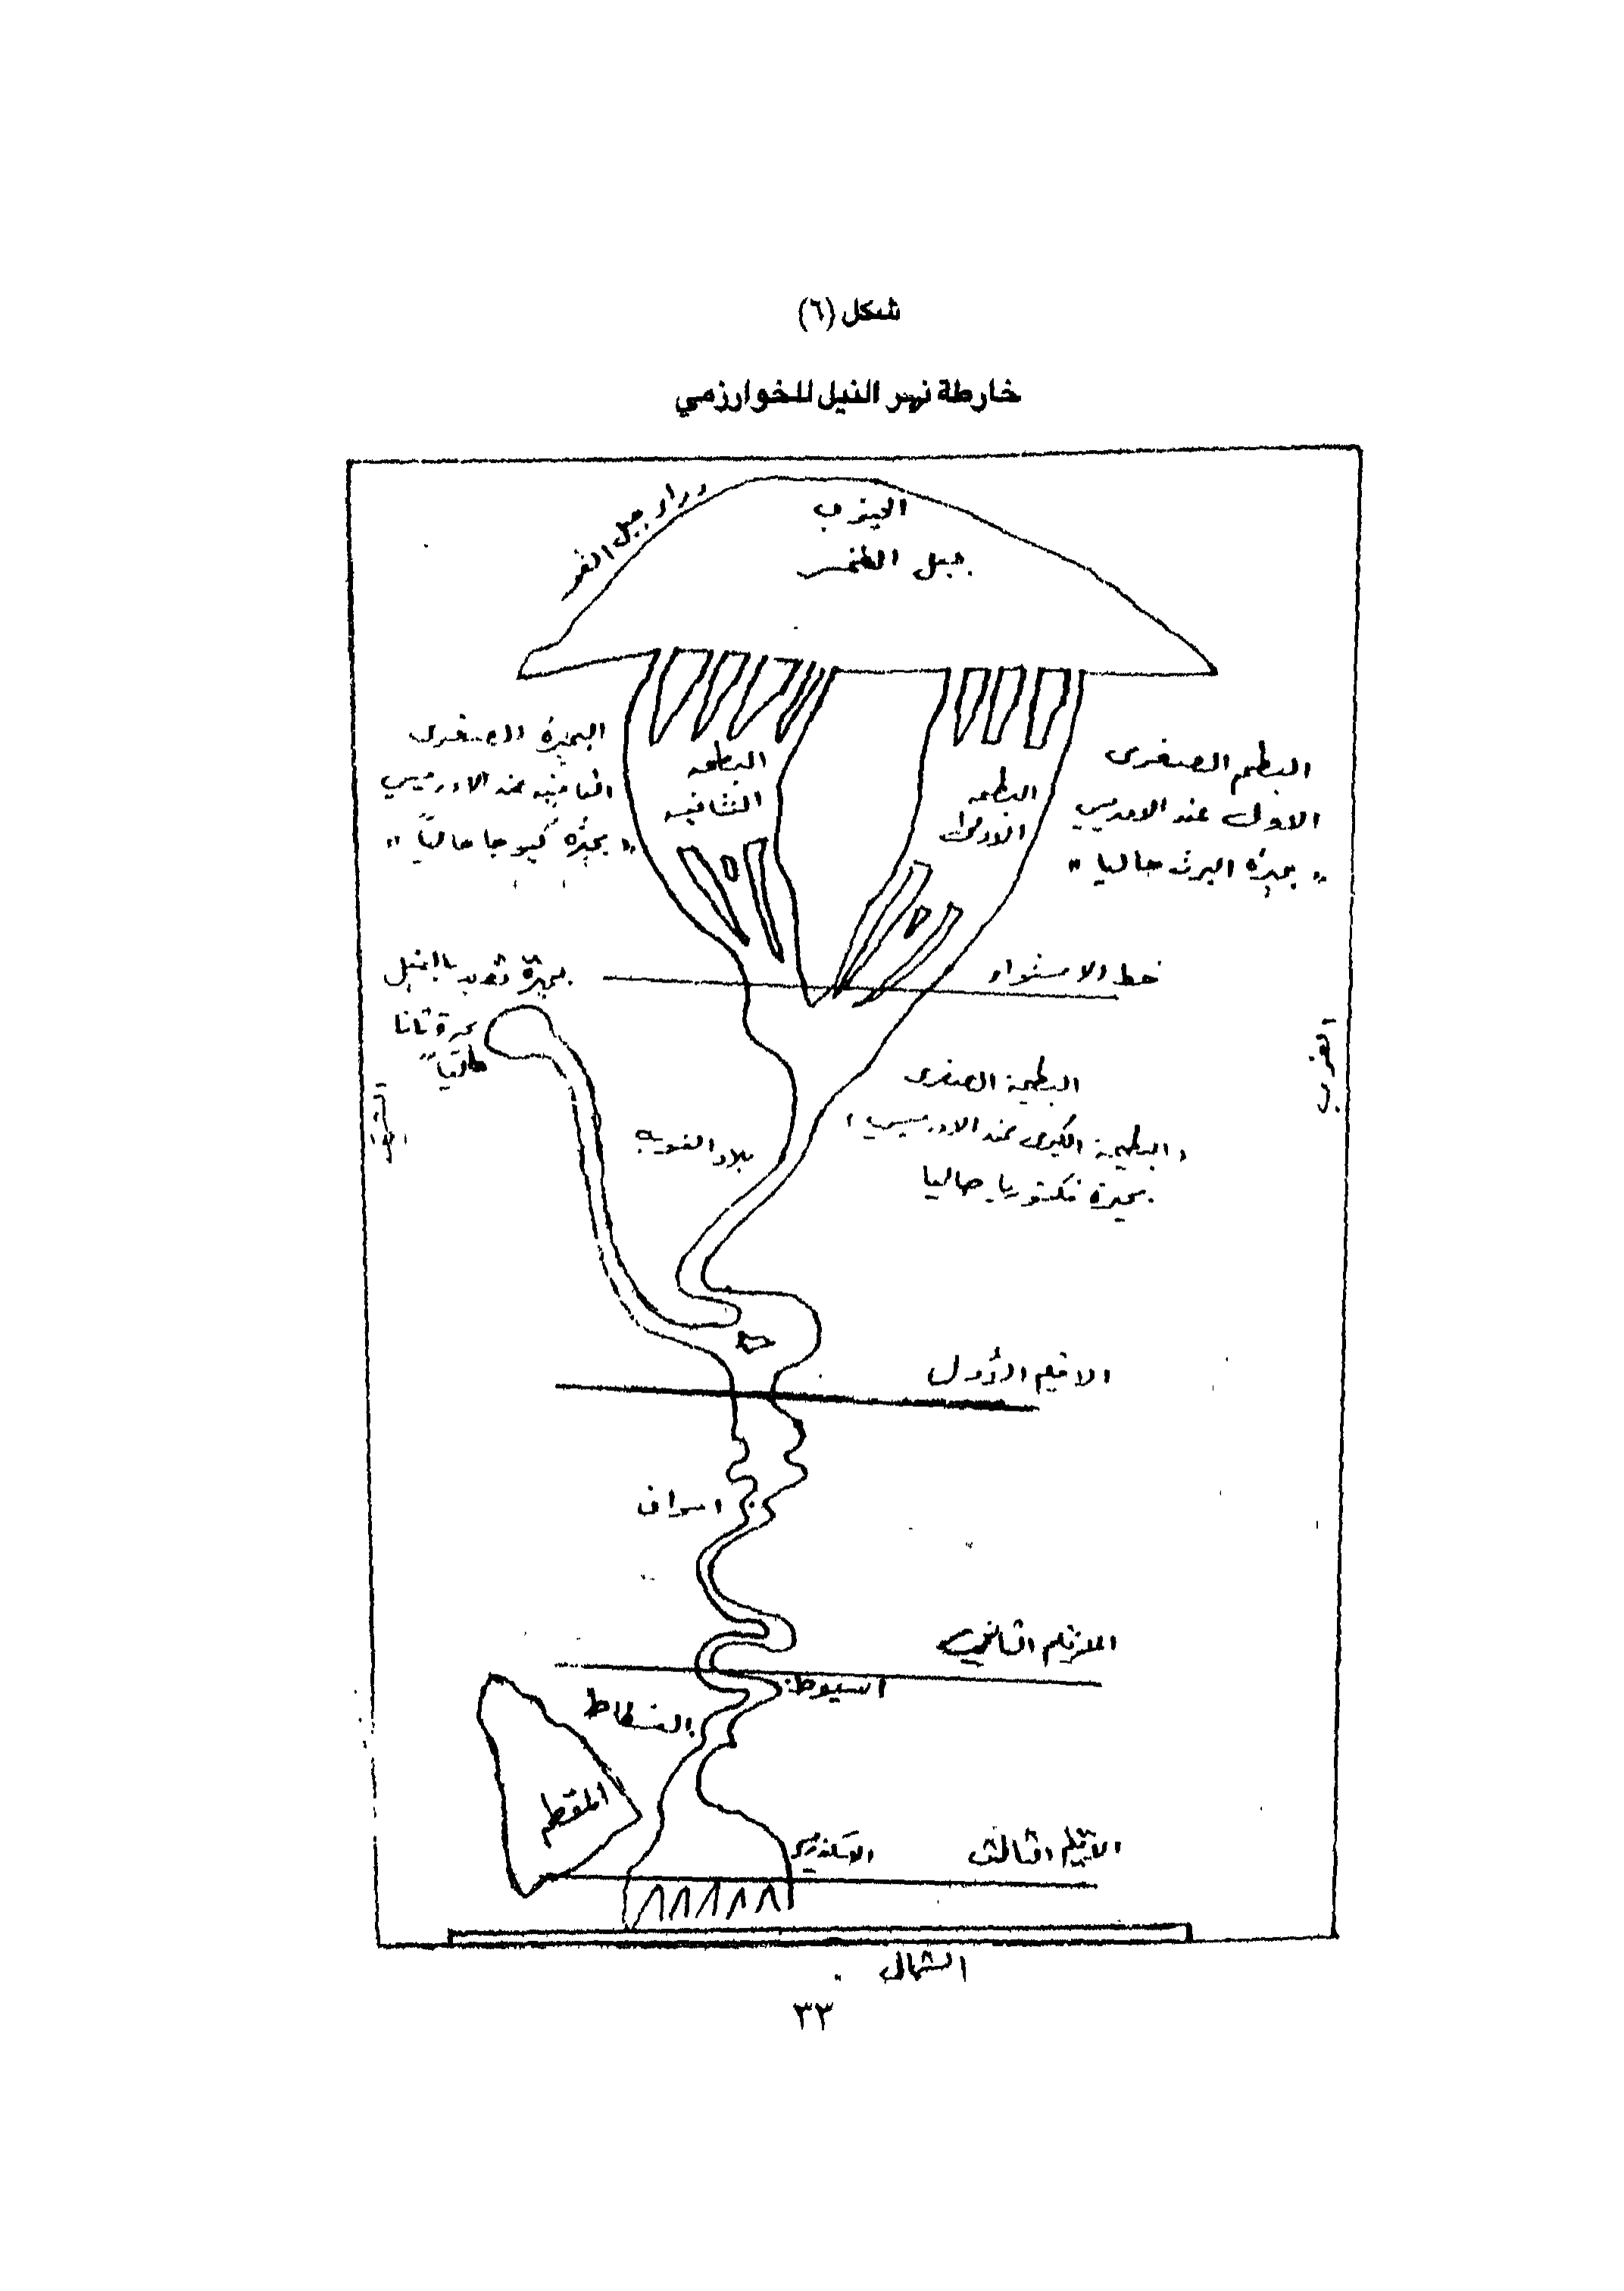 شكل (٦)
خارطة نهر النيل للخوارزمي
الجنوب
جبل القمر
جبل القمر
البحيرة الصغرى
الثانية عند الادريسي
" بحيرة كيوجا حالياً "
البطيحة
الثانية
البطيحة
الاولى
الصغرى
الاولى عند الادريسي
" بحيرة البرت حاليا "
خط الاستواء
بحيرة
بحيرة تانا
حالياً
الشرق
الغرب
البطيحة الصغرى
" البطيحة الكبرى عند الادريسي "
بحيرة فكتوريا حاليا
بلاد النوبه
الاقيلم الأول
اسوان
الاقيلم الثاني
اسيوط
الفسطاط
المقطم
الاسكندرية
الاقيلم الثالث
الشمال
٣٣